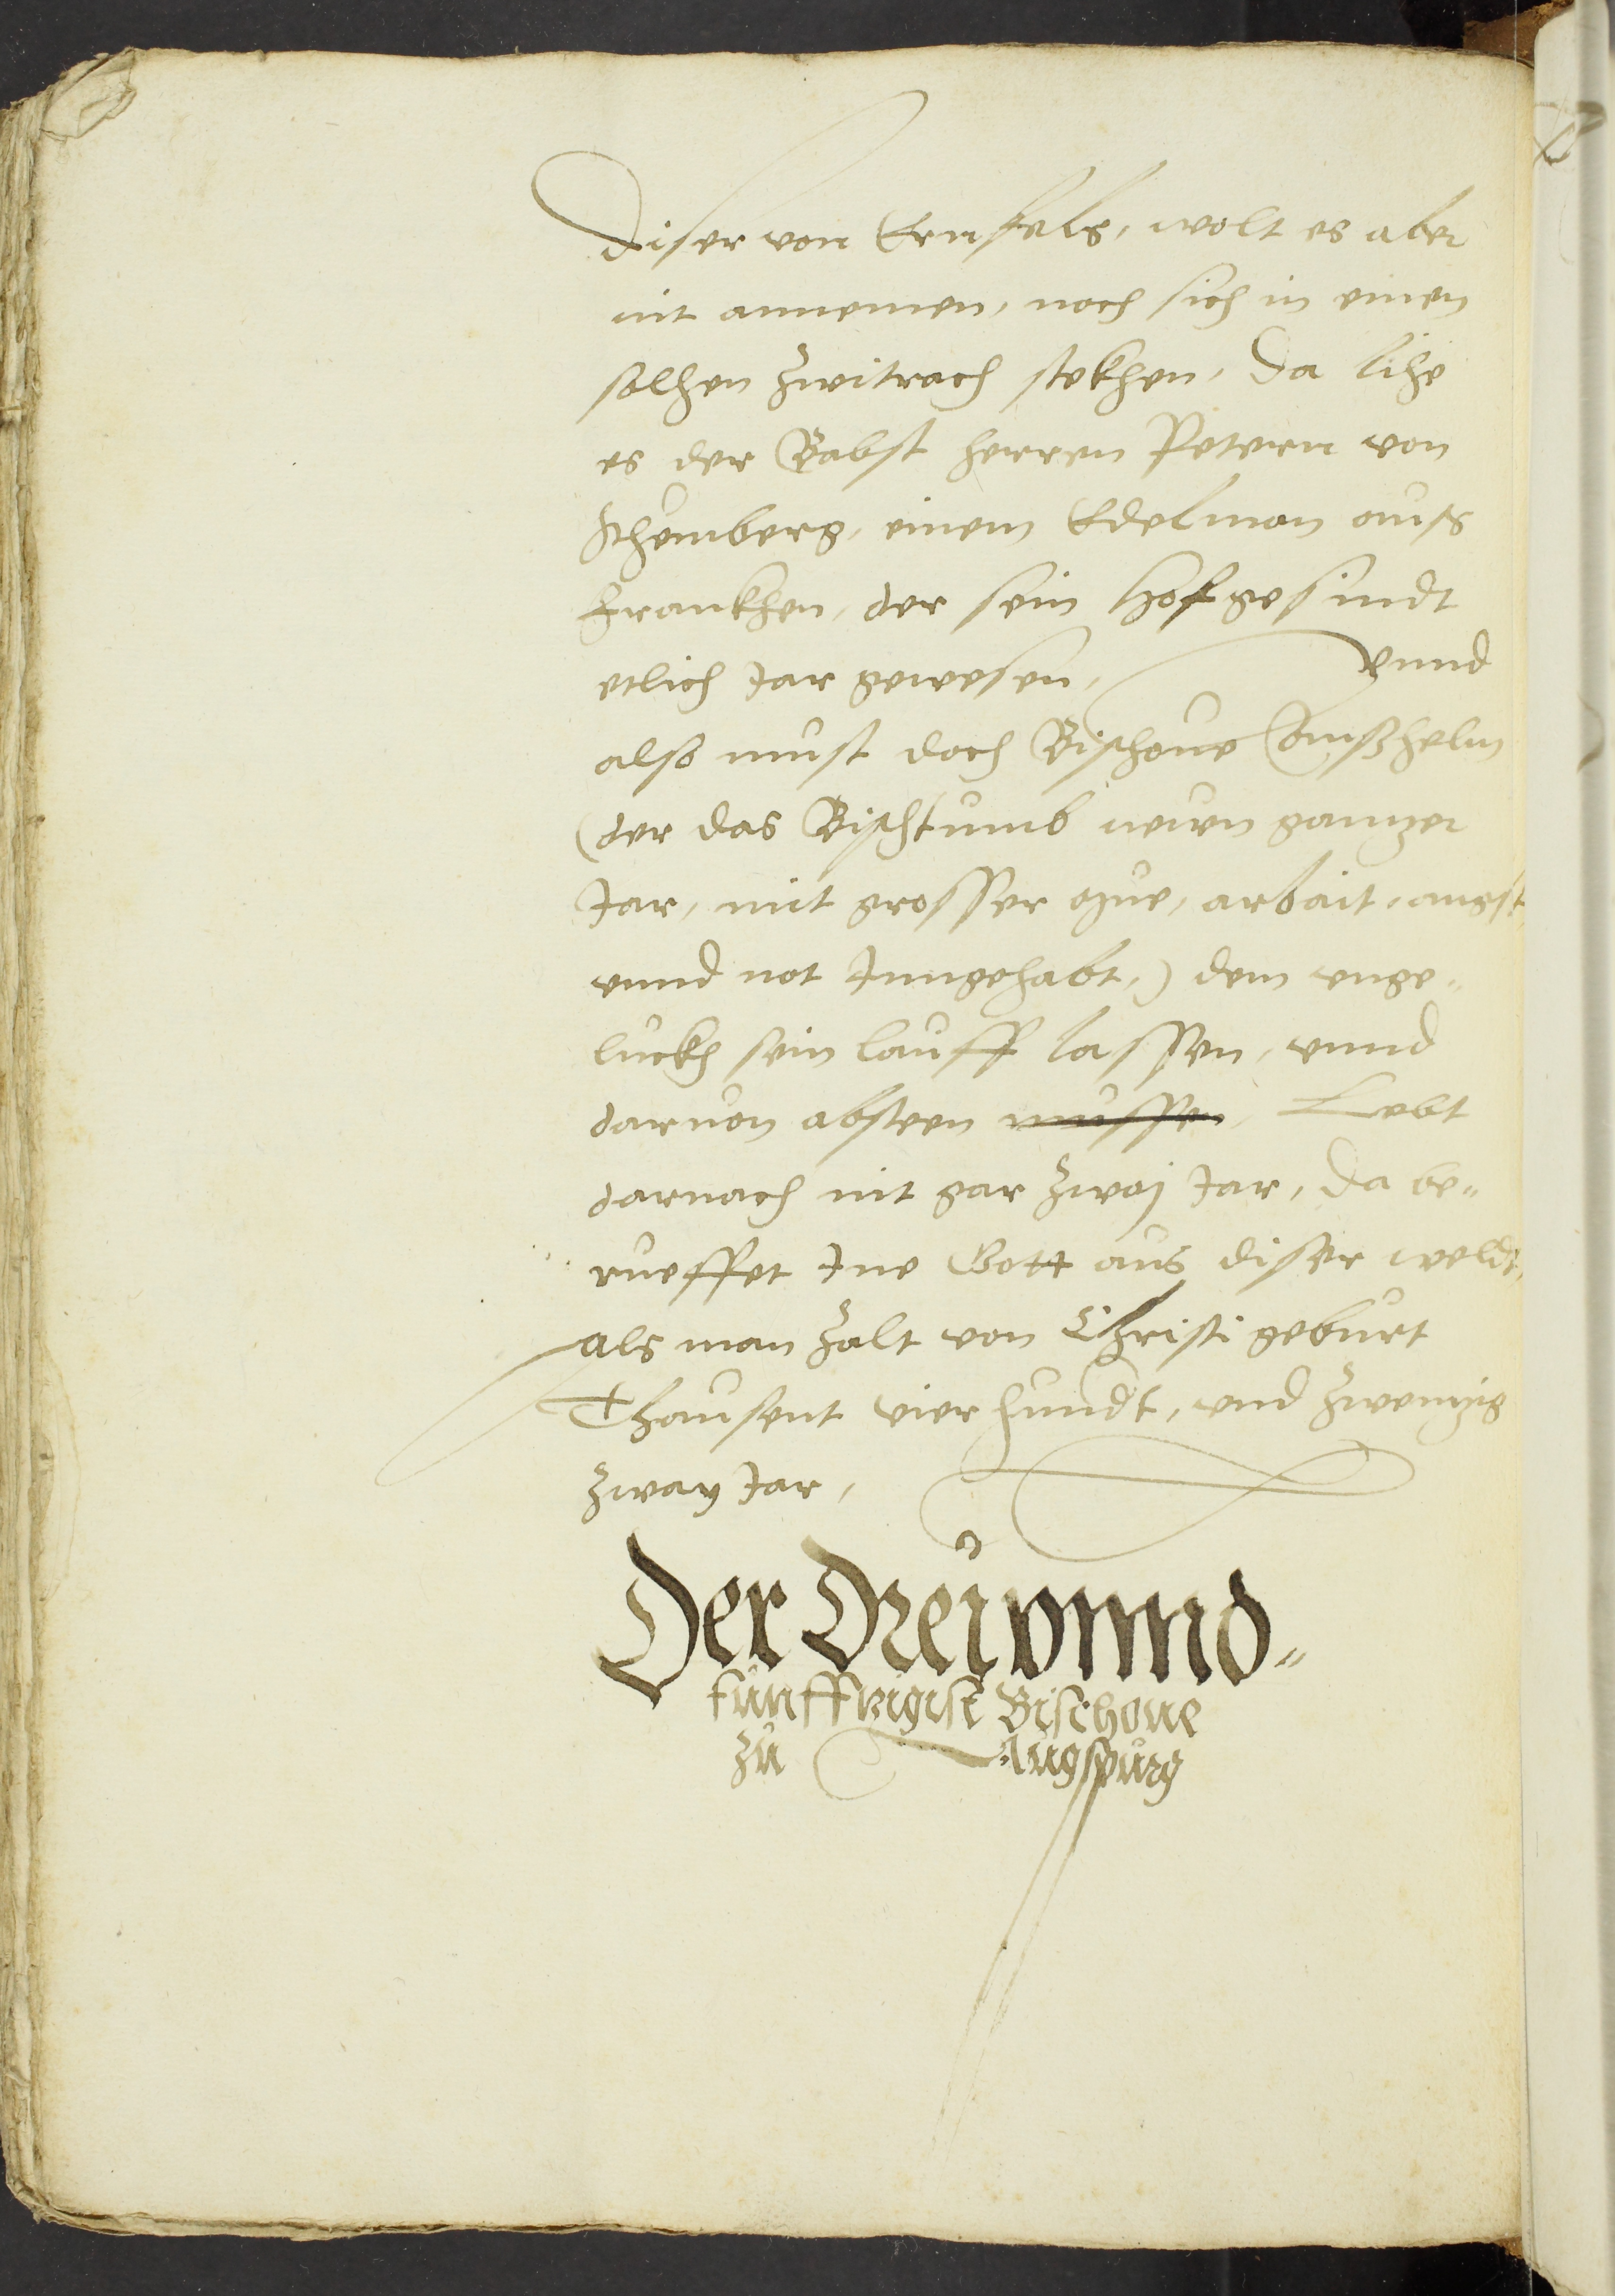 Diser von Ernfels, wolt es aber
nit annemen, noch sich in einen
solhen zwitrach stekhen, Da lihe
es der Babst herren Petern von
Schemberg, einem Edelman auß
Frankhen, der sein Hofgesindt
etlich Jar gewesen, Vnnd
also must doch Bischoue Anßhelm
(der das Bischtumb neun gantzer
Jar, mit grosser mue, arbait, angst,
vnnd not Inngehabt,) dem vnge„
luckh sein lauff lassen, vnnd
daruon absteen mussen, Lebt
darnach nit gar zwaj Jar, Da be„
rueffet Ine Gott aus diser weldt,
als man zalt von Christi geburt
Thausent vierhundt, vnd zwenzig
zway Jar,
Der Dreivnnd„
fünffzigist Bischoue
zu Augspurg